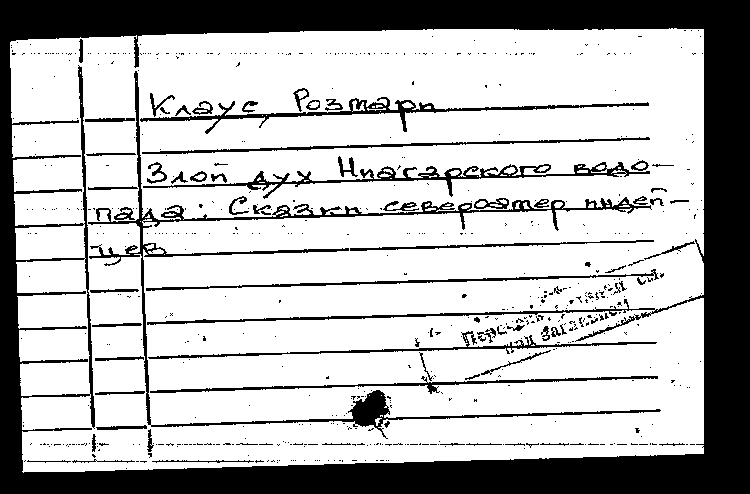 Клаус, Розмари
Злой дух Ниагарского водо-
пада: Сказки североамер индей-
цев
см.
под заглавием